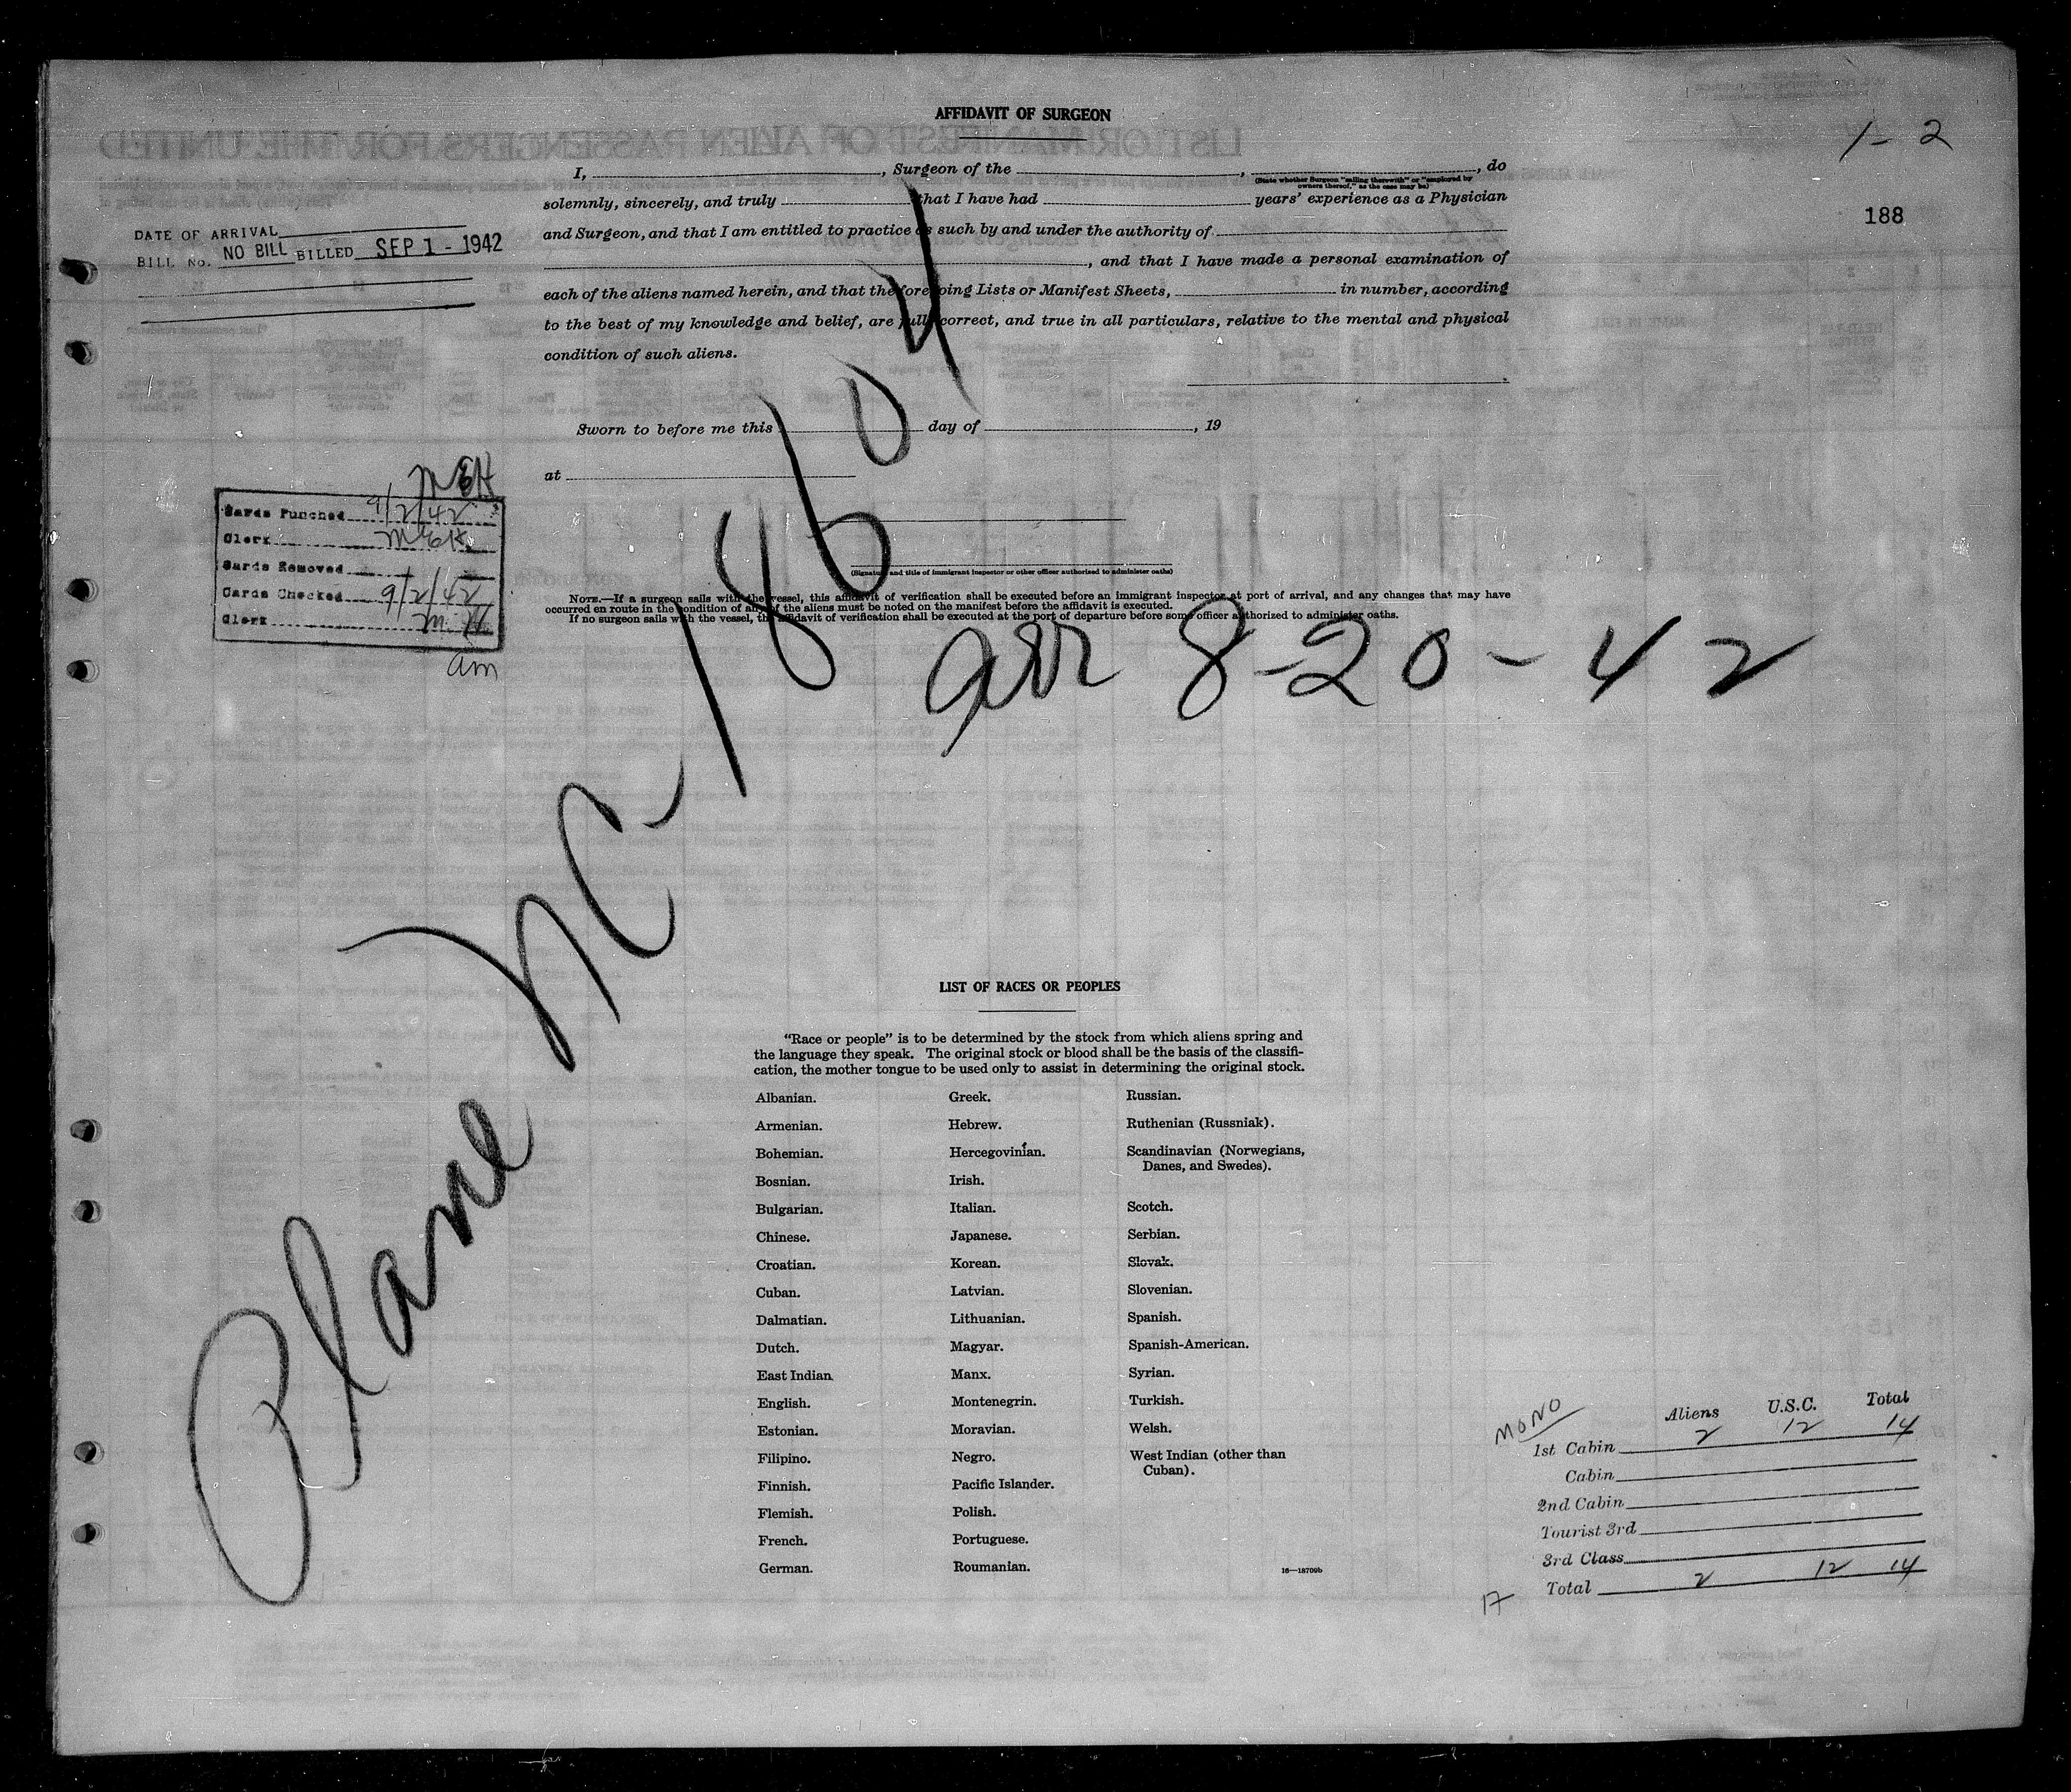 AFFIDAVIT OF SURGEON
1-2
188
I, , Surgeon of the , , do
(State whether Surgeon "sailing therewith" or "employed by
owners thereof," as the case may be)
solemnly, sincerely, and truly that I have had years' experience as a Physician
and Surgeon, and that I am entitled to practice as such by and under the authority of
, and that I have made a personal examination of
each of the aliens named herein, and that the foregoing Lists or Manifest Sheets, in number, according
to the best of my knowledge and belief, are full, correct, and true in all particulars, relative to the mental and physical
condition of such aliens.
DATE OF ARRIVAL
BILL No. NO BILL BILLED SEP 1 - 1942
Sworn to before me this day of , 19
at
MEK
Cards Punched 9/2/42
Clerk MEK
Cards Removed
Cards Checked 9/2/42
Clerk
am
(Signature and title of immigrant inspector or other officer authorized to administer oaths)
NOTE.—If a surgeon sails with the vessel, this affidavit of verification shall be executed before an immigrant inspector at port of arrival, and any changes that may have
occurred en route in the condition of any of the aliens must be noted on the manifest before the affidavit is executed.
If no surgeon sails with the vessel, the affidavit of verification shall be executed at the port of departure before some officer authorized to administer oaths.
Plane NC-18604
arr 8-20-42
LIST OF RACES OR PEOPLES
"Race or people" is to be determined by the stock from which aliens spring and
the language they speak. The original stock or blood shall be the basis of the classifi-
cation, the mother tongue to be used only to assist in determining the original stock.
Albanian.
Armenian.
Bohemian.
Bosnian.
Bulgarian.
Chinese.
Croatian.
Cuban.
Dalmatian.
Dutch.
East Indian
English.
Estonian.
Filipino.
Finnish.
Flemish.
French.
German.
Greek.
Hebrew.
Hercegovinian.
Irish.
Italian.
Japanese.
Korean.
Latvian.
Lithuanian.
Magyar.
Manx.
Montenegrin.
Moravian.
Negro.
Pacific Islander.
Polish.
Portuguese.
Roumanian.
Russian.
Ruthenian (Russniak).
Scandinavian (Norwegians,
Danes, and Swedes).
Scotch.
Serbian.
Slovak.
Slovenian.
Spanish.
Spanish-American.
Syrian.
Turkish.
Welsh.
West Indian (other than
Cuban).
16—18709b
MONO
Aliens U.S.C. Total
1st Cabin 2 12 14
Cabin
2nd Cabin
Tourist 3rd
3rd Class
Total 2 12 14
17